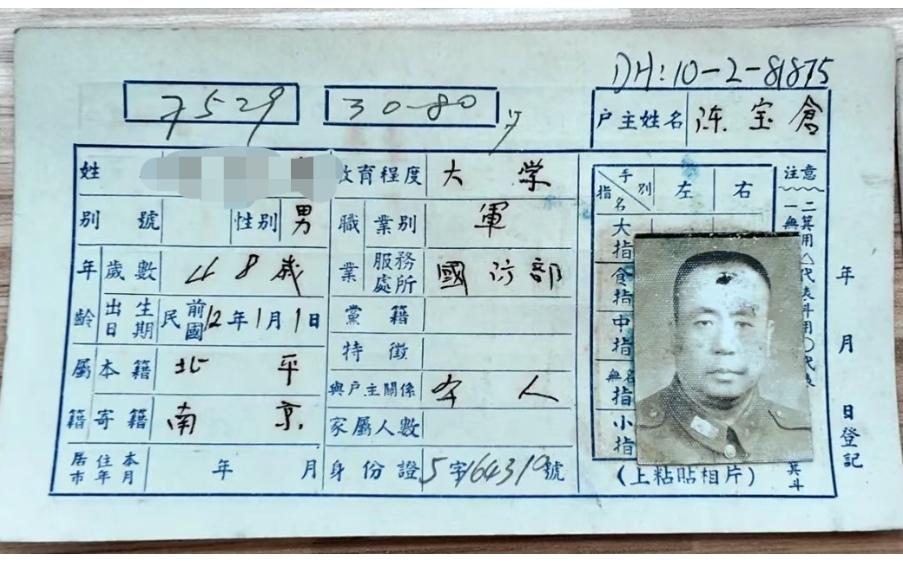 DH:10-2-81875
7529 30-80
户主姓名 陈宝倉
姓 教育程度 大学
別號 性别 男 職業 業别 軍
年齡 歲數 48歲 服務處所 國防部
出生日期 民國前12年1月1日 黨籍
屬籍 本籍 北平 特徵
與戶主關係 本人
寄籍 南京 家屬人數
居住本市年月 年 月 身份證 5字164319號
手别 指名 左 右
大指
食指
中指
無名指
小指
(上粘貼相片)
注意
年 月 日登記